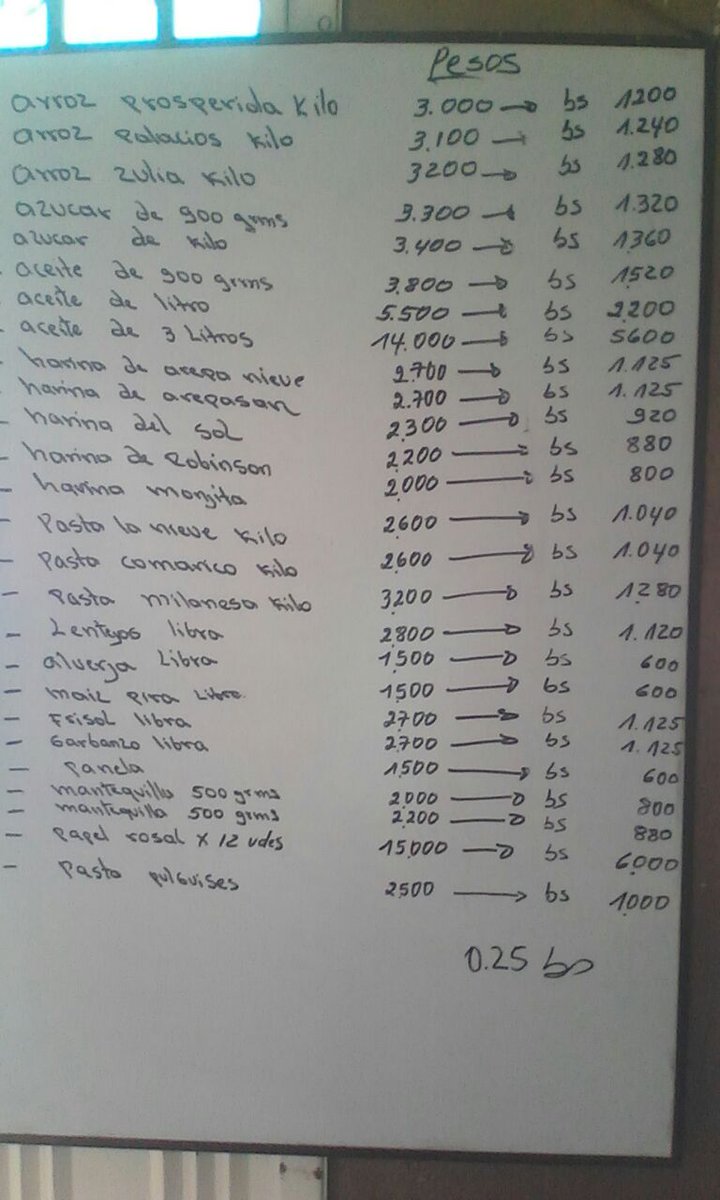 Pesos
arroz prosperida Kilo 3.000 → bs 1200
arroz Palacios Kilo 3.100 → bs 1.240
arroz zulia Kilo 3200 → bs 1.280
azucar de 900 grms 3.300 → bs 1.320
azucar de Kilo 3.400 → bs 1360
- aceite de 900 grms 3.800 → bs 1520
- aceite de litro 5.500 → bs 2200
- aceite de 3 Litros 14.000 → bs 5600
- harina de arepa nieve 2.700 → bs 1.125
- harina de arepasan 2.700 → bs 1.125
- harina del sol 2300 → bs 920
- harina de Robinson 2,200 → bs 880
- harina monjita 2,000 → bs 800
- Pasta la nieve Kilo 2600 → bs 1.040
- Pasta comarico Kilo 2,600 → bs 1.040
- Pasta milanesa Kilo 3200 → bs 1280
- Lentejas libra 2800 → bs 1.120
- alverja Libra 1,500 → bs 600
- maiz pira Libra 1500 → bs 600
- Frisol libra 2700 → bs 1.125
- Garbanzo libra 2,700 → bs 1.125
- Panela 1,500 → bs 600
- mantequilla 500 grms 2,000 → bs 800
- mantequilla 500 grms 2,200 → bs 880
- Papel rosal x 12 udes 15,000 → bs 6,000
- Pasta 2500 → bs 1,000
0.25 bs